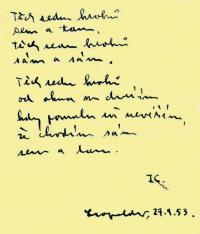 Těch sedm kroků
sem a tam.
Těch sedm kroků
sám a sám.
Těch sedm kroků
od okna ke dveřím
kdy pomalu už nevěřím,
že chodím sám
sem a tam.
Leopoldov, 27.9.53.